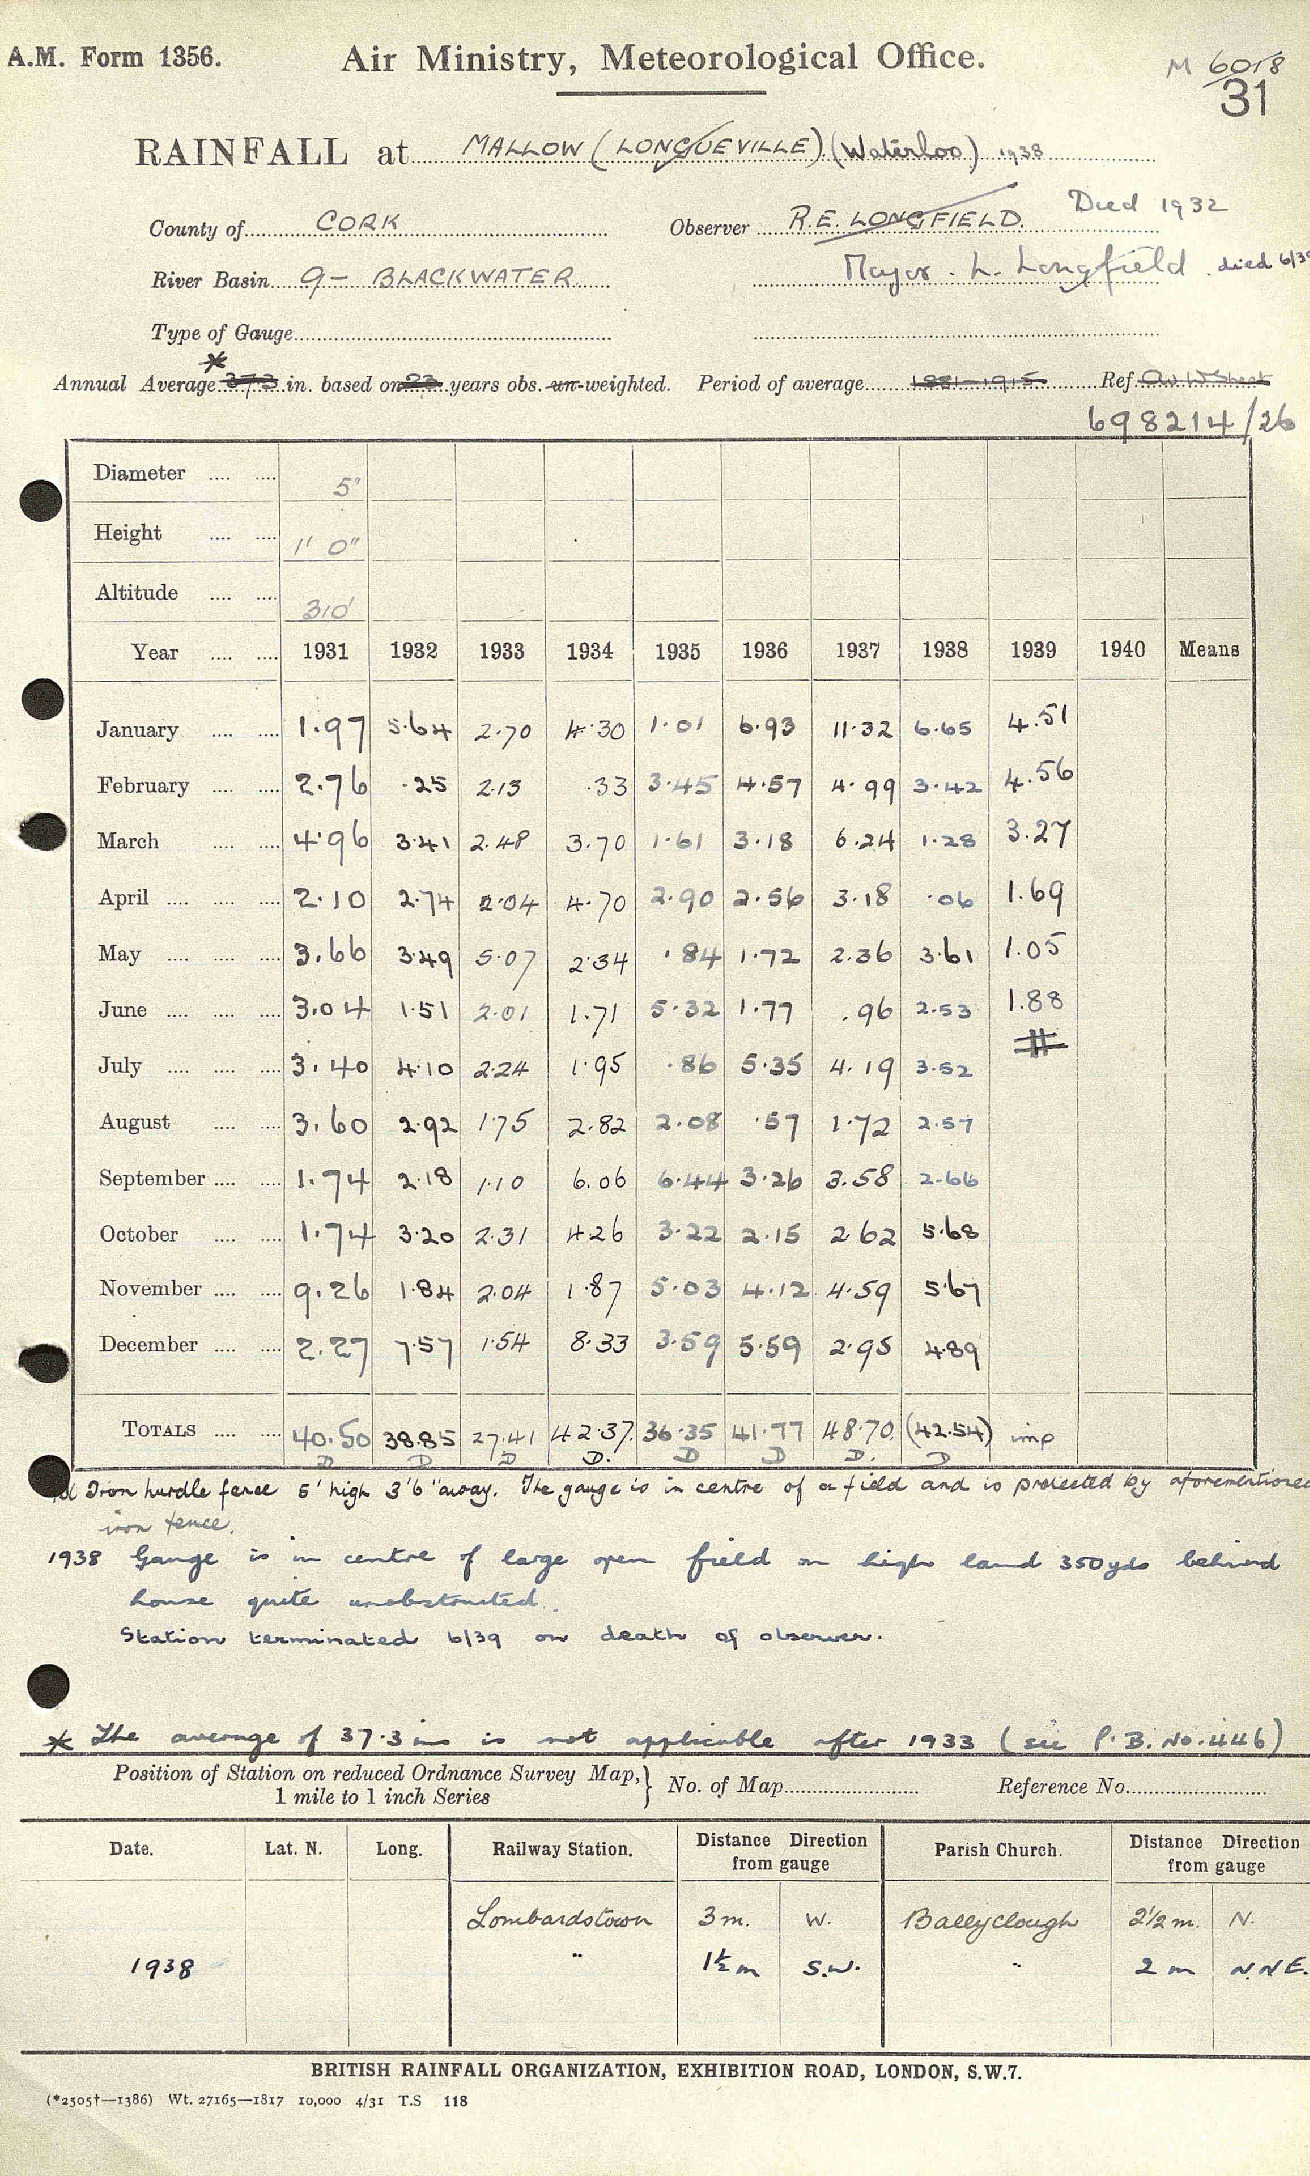 A.M. Form 1356.
Air Ministry, Meteorological Office.
M 6018
31
RAINFALL at MALLOW (LONGUEVILLE) (Waterloo) 1938
County of CORK Observer R.E. LONGFIELD. Died 1932
River Basin 9 - BLACKWATER Major. L. Longfield. died 6/39
Type of Gauge
*
Annual Average 37.3 in. based on 23 years obs. un-weighted. Period of average 1881-1915 Ref.
698214/26
Diameter 5"
Height 1' 0"
Altitude 310'
Year 1931 1932 1933 1934 1935 1936 1937 1938 1939 1940 Means
January 1.97 5.64 2.70 4.30 1.01 6.93 11.32 6.65 4.51
February 2.76 .25 2.13 .33 3.45 4.57 4.99 3.42 4.56
March 4.96 3.41 2.48 3.70 1.61 3.18 6.24 1.28 3.27
April 2.10 2.74 2.04 4.70 2.90 2.56 3.18 .06 1.69
May 3.66 3.49 5.07 2.34 .84 1.72 2.36 3.61 1.05
June 3.04 1.51 2.01 1.71 5.32 1.77 .96 2.53 1.88
July 3.40 4.10 2.24 1.95 .86 5.35 4.19 3.52
August 3.60 2.92 1.75 2.82 2.08 .57 1.72 2.57
September 1.74 2.18 1.10 6.06 6.44 3.26 3.58 2.66
October 1.74 3.20 2.31 4.26 3.22 2.15 2.62 5.68
November 9.26 1.84 2.04 1.87 5.03 4.12 4.59 5.67
December 2.27 7.57 1.54 8.33 3.59 5.59 2.95 4.89
TOTALS 40.50 38.85 27.41 42.37 36.35 41.77 48.70 (42.54) imp
D D D D. D D D. D
Iron hurdle fence 5' high 3'6" away. The gauge is in centre of a field and is protected by aforementioned
iron fence.
1938 Gauge is in centre of large open field on high land 350yds behind
house quite unobstructed.
Station terminated 6/39 on death of observer.
* The average of 37.3 ins is not applicable after 1933 (see P.B. No. 446)
Position of Station on reduced Ordnance Survey Map, } No. of Map Reference No.
1 mile to 1 inch Series
Date. Lat. N. Long. Railway Station. Distance Direction from gauge Parish Church. Distance Direction from gauge
Lombardstown 3 m. W. Ballyclough 2½ m. N.
1938 " 1½ m S.W. " 2 m N.N.E.
BRITISH RAINFALL ORGANIZATION, EXHIBITION ROAD, LONDON, S.W.7.
(*2505†—1386) Wt. 27165—1817 10,000 4/31 T.S 118